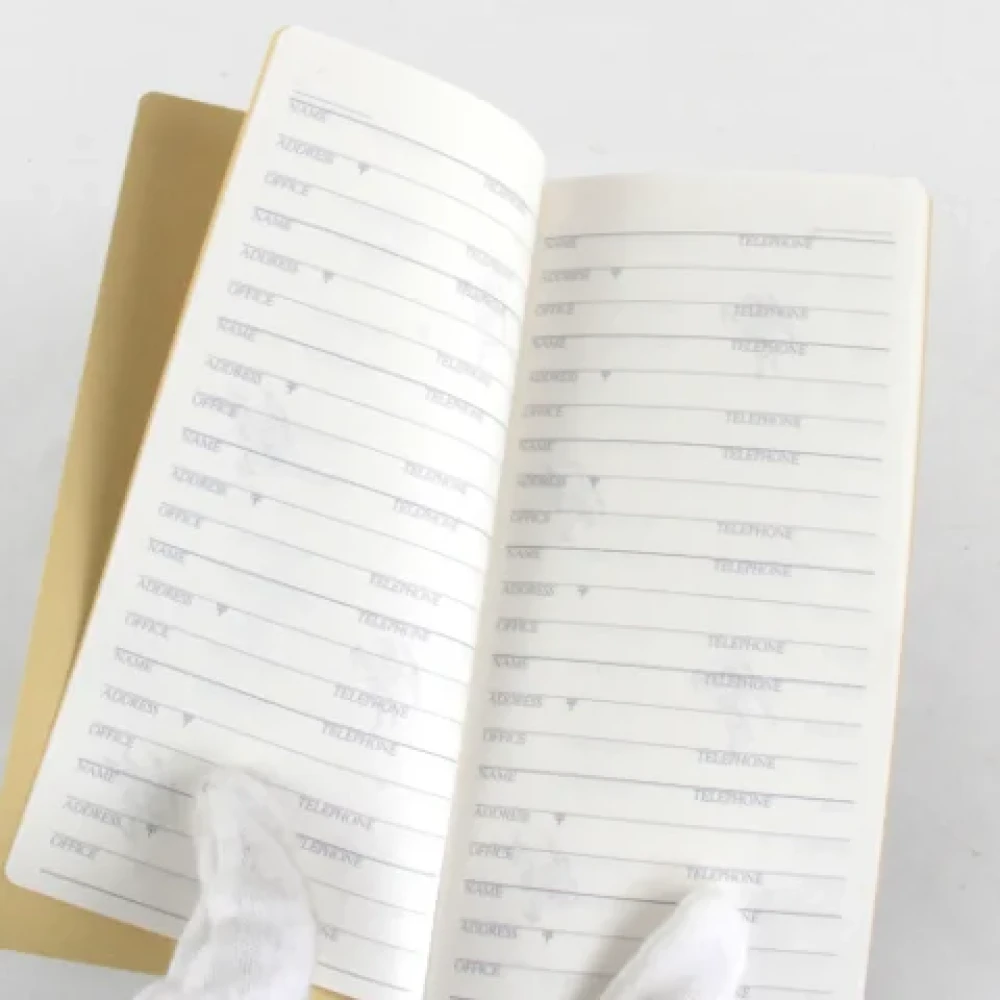 NAME TELEPHONE
ADDRESS
OFFICE TELEPHONE
NAME TELEPHONE
ADDRESS
OFFICE TELEPHONE
NAME TELEPHONE
ADDRESS
OFFICE TELEPHONE
NAME TELEPHONE
ADDRESS
OFFICE TELEPHONE
NAME TELEPHONE
ADDRESS
OFFICE TELEPHONE
NAME TELEPHONE
ADDRESS
OFFICE TELEPHONE
NAME LEPHONE
ADDRESS
OFFICE NE
NAME TELEPHONE
ADDRESS
OFFICE TELEPHONE
NAME TELEPHONE
ADDRESS
OFFICE TELEPHONE
NAME TELEPHONE
ADDRESS
OFFICE TELEPHONE
NAME TELEPHONE
ADDRESS
OFFICE TELEPHONE
NAME TELEPHONE
ADDRESS
OFFICE TELEPHONE
NAME TELEPHONE
ADDRESS
OFFICE TELEPHONE
NAME NE
ADDRESS
OFFICE E